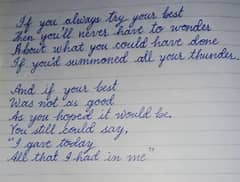 If you always try your best
Then you'll never have to wonder
About what you could have done
If you'd summoned all your thunder.
And if your best
Was not as good
As you hoped it would be,
You still could say,
"I gave today
All that I had in me"